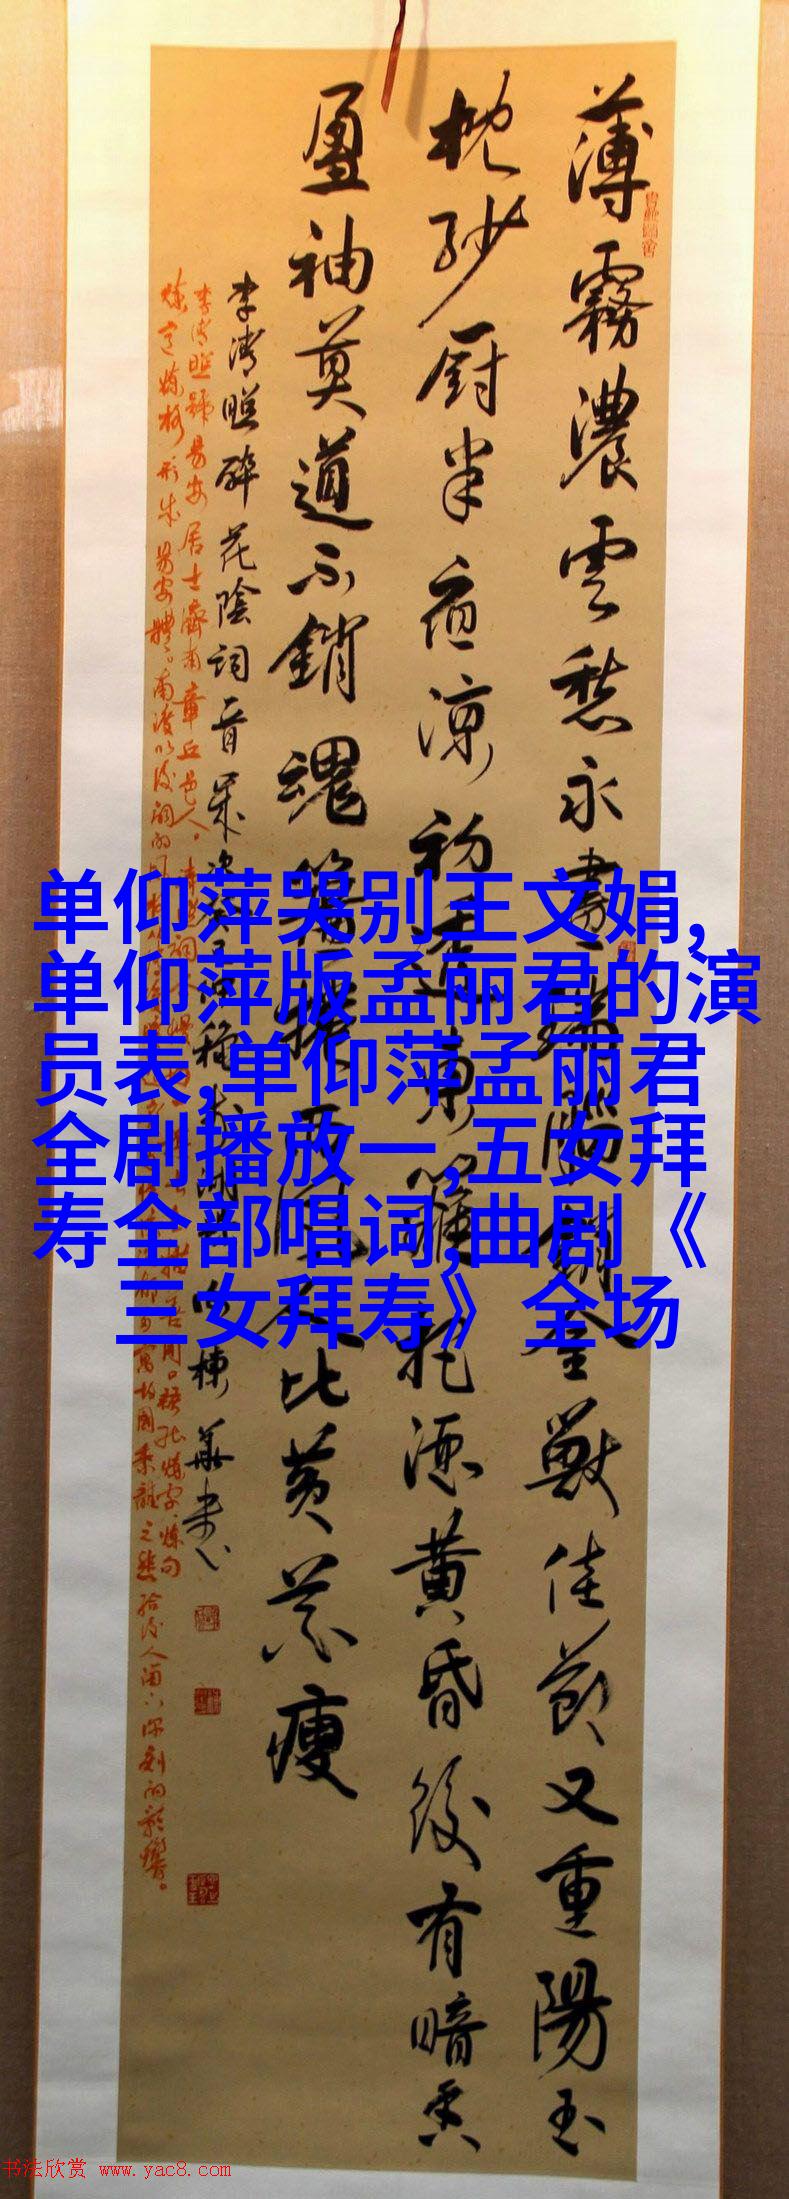 薄霧濃雲愁永晝瑞腦銷金獸佳節又重陽玉
枕紗厨半夜涼初透東籬把酒黃昏後有暗香
盈袖莫道不銷魂簾捲西風人比黃花瘦
李清照醉花陰詞
李清照號易安居士濟南章丘邑人。
形成易安體。南渡以後詞的
单仰萍哭别王文娟,
单仰萍版孟丽君的演
员表,单仰萍孟丽君
全剧播放一,五女拜
寿全部唱词,曲剧《
三女拜寿》全场
书法欣赏 www.yac8.com